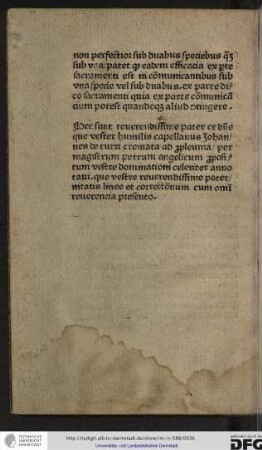 non perfectior sub duabus speciebus qȝ
sub vna/patet ꝙ eadem efficacia ex pte
sacramenti est in cōmunicantibus sub
vna specie vel sub duabus. ex parte di
co sacramenti quia ex parte cōmunica
tium potest quandoqȝ aliud cōtingere.
Hec sunt reuerendissime pater et dn̄e
que vester humilis capellanus Johan/
nes de turri cremata ad ꝓpleuma/ per
magistrum petrum angelicum ꝓposi/
tum vestre dominationi celeriter anno
taui. que vestre reuerendissime pater/
nitatis lineo et correctōnum cum omī
reuerencia presento.
http://tudigit.ulb.tu-darmstadt.de/show/inc-ii-538/0036
Universitäts- und Landesbibliothek Darmstadt
TECHNISCHE
UNIVERSITÄT
DARMSTADT
DFG